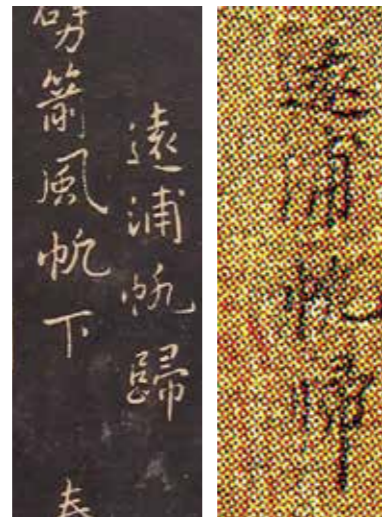 遠浦帆歸
箭風帆下
遠浦帆歸